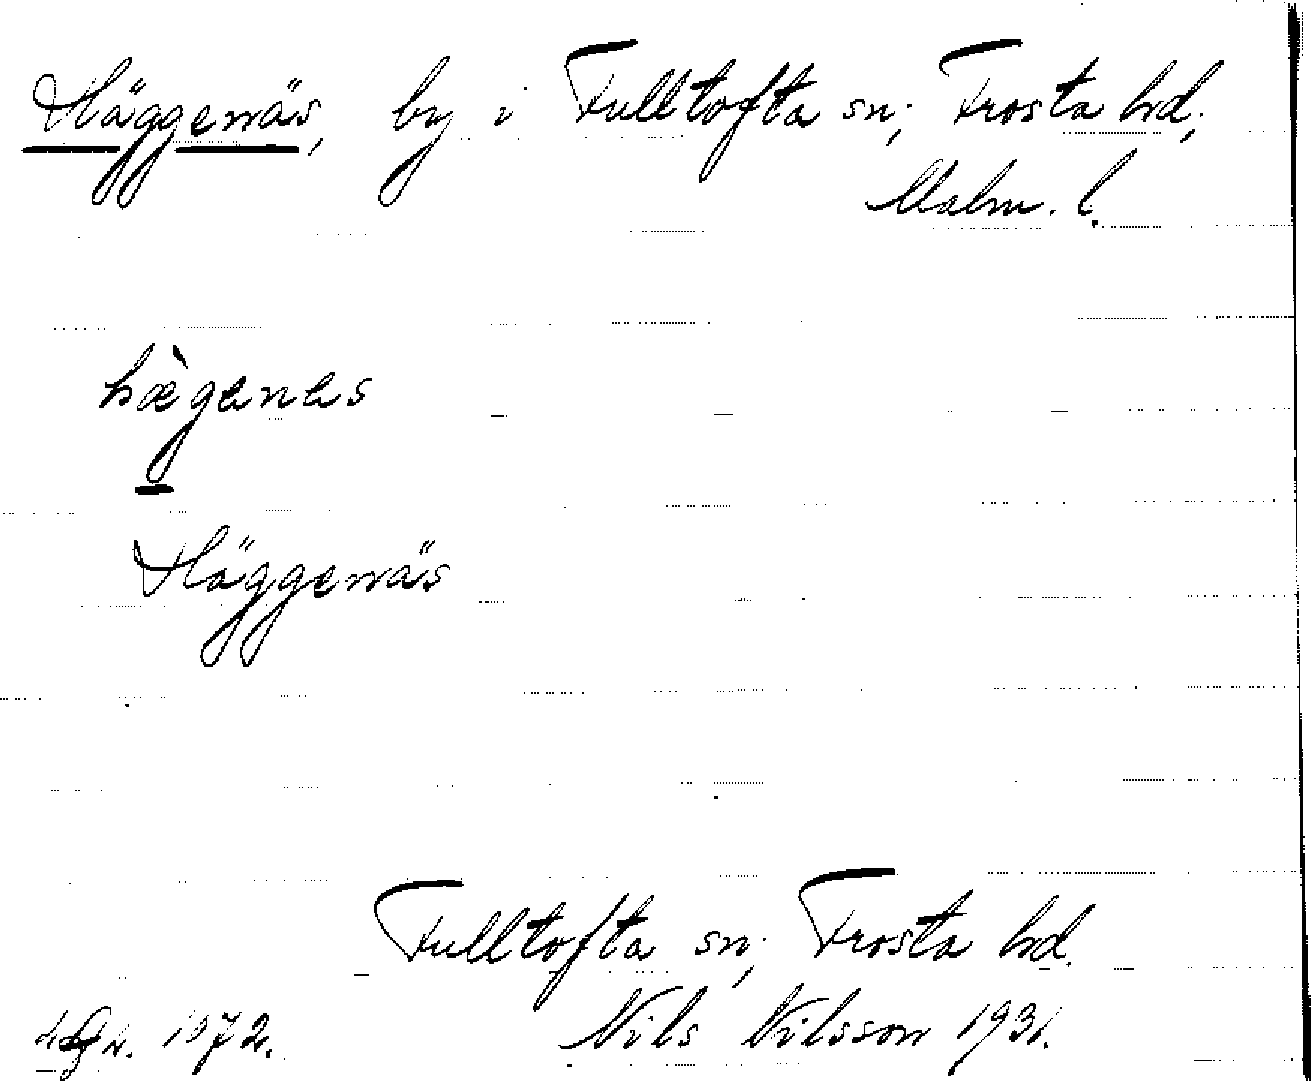 Häggenäs, by i Fulltofta sn; Frosta hd;
Malm. l.
hæ̀genes
Häggenäs
Fulltofta sn; Frosta hd.
1972. Nils Nilsson 1931.